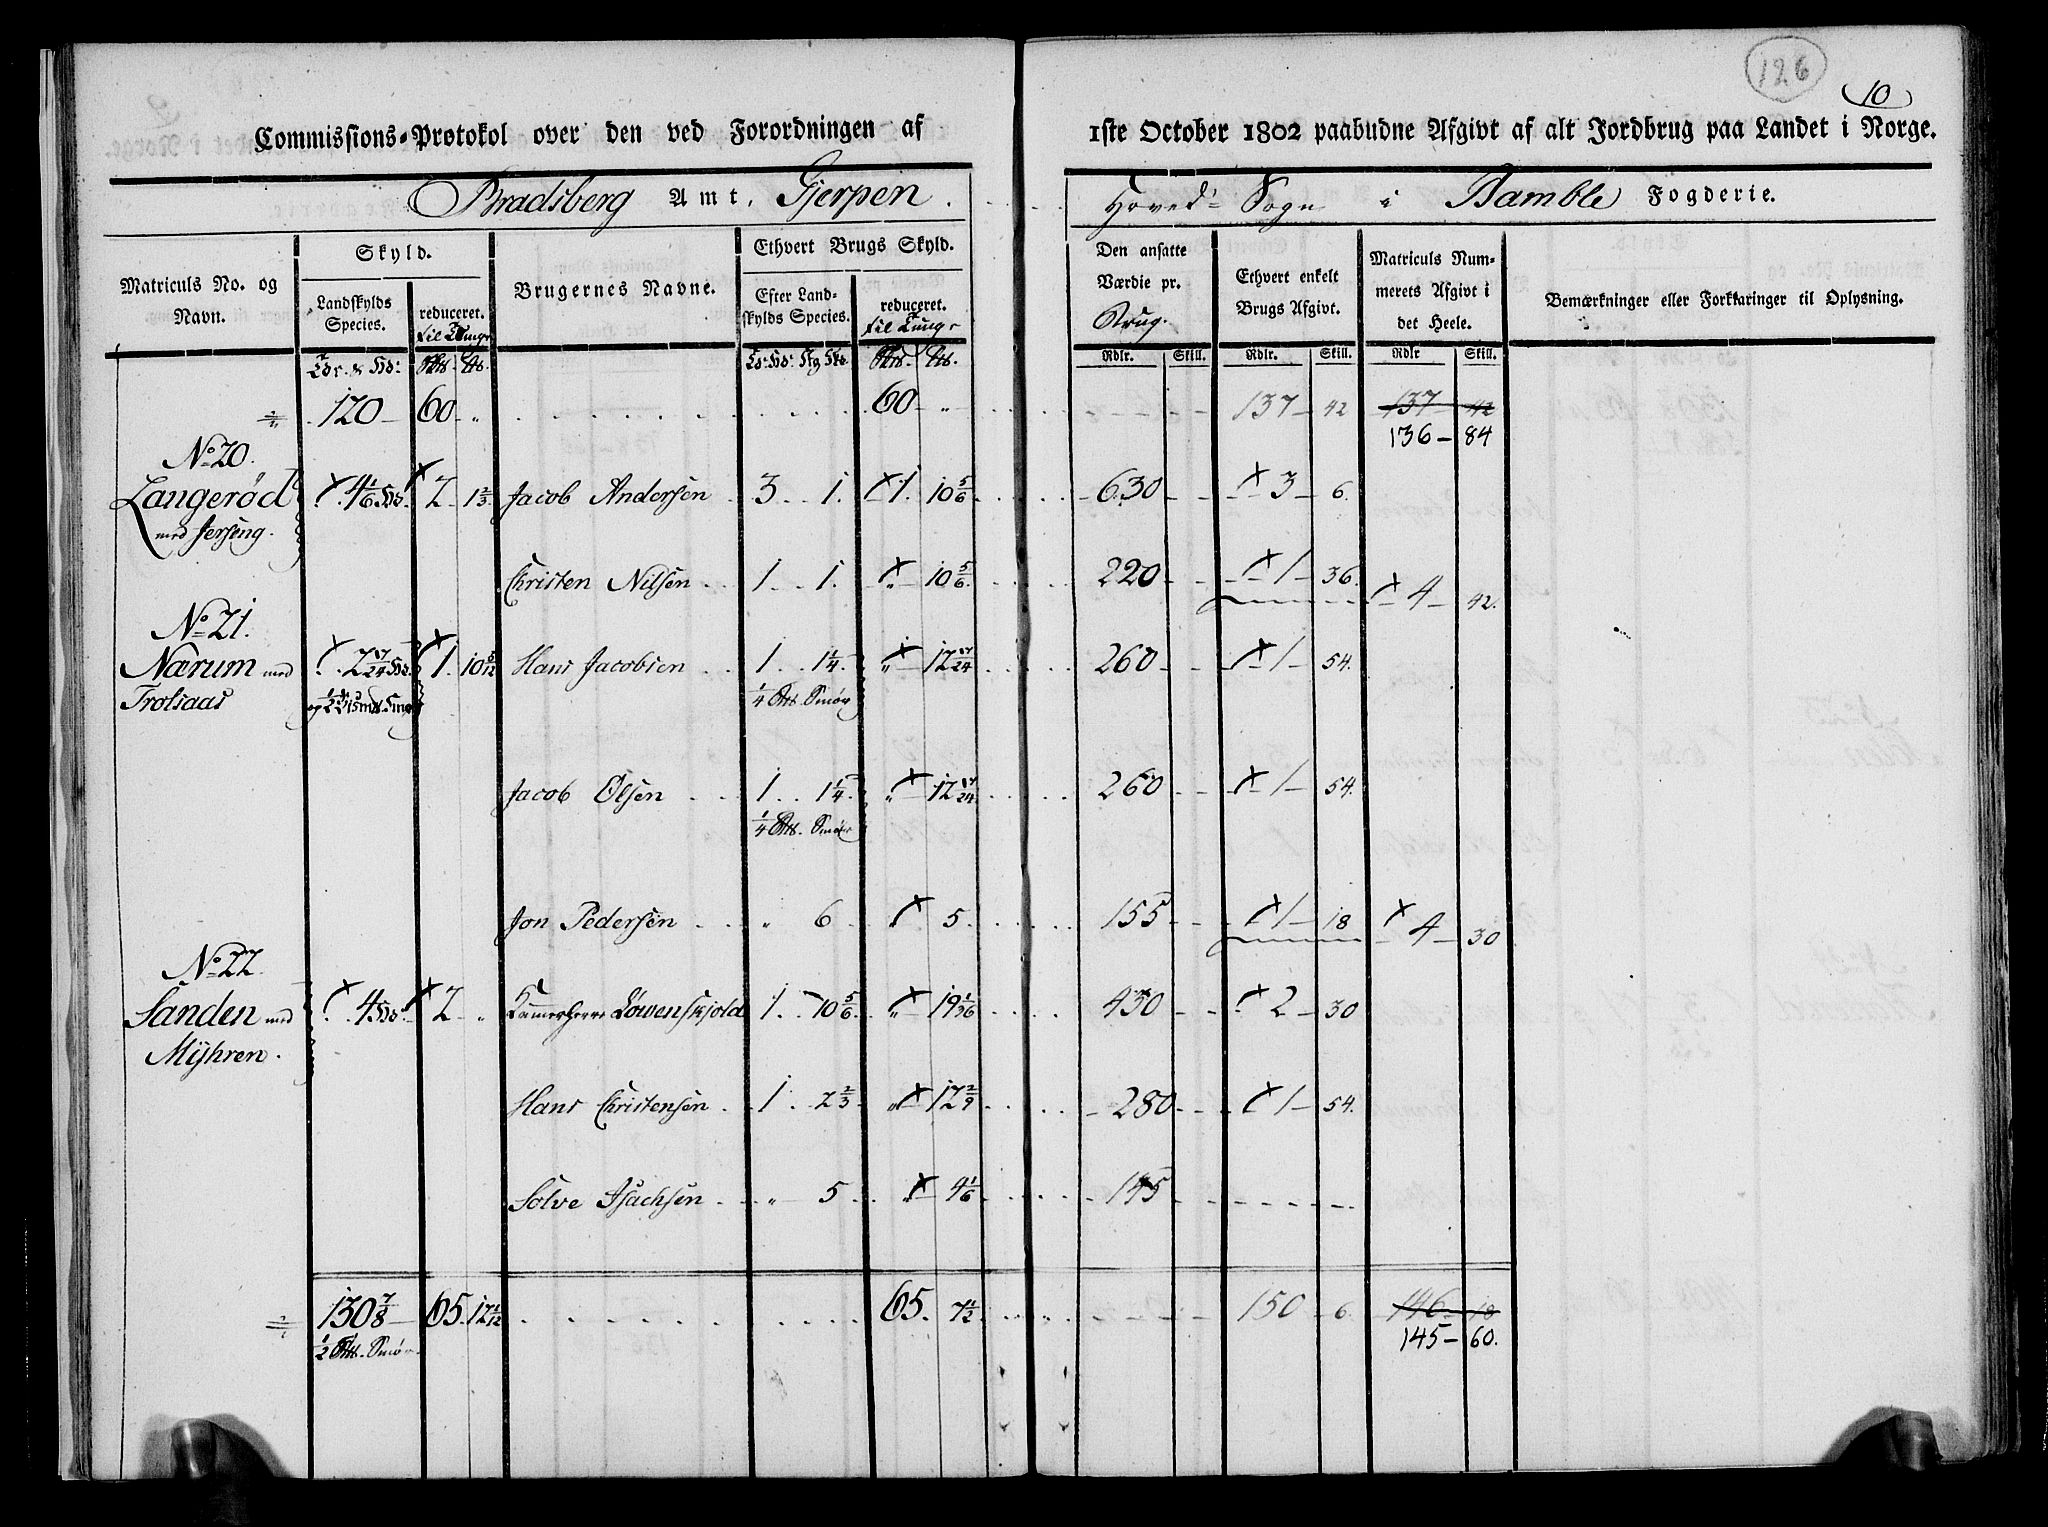 126
10
Commissions-Protokol over den ved Forordningen af 1ste October 1802 paabudne Afgivt af alt Jordbrug paa Landet i Norge.
Bradsberg Amt, Gjerpen Hoved Sogn i Bamble Fogderie.
Matriculs No. og Navn.
Skyld.
Landskylds Species.
reduceret. til Tunge
Brugernes Navne.
Ethvert Brugs Skyld.
Efter Landskylds Species.
reduceret. til Tunge
Den ansatte Værdie pr. Brug.
Ethvert enkelt Brugs Afgivt.
Matriculs Nummerets Afgivt i det Heele.
Bemærkninger eller Forklaringer til Oplysning.
Rdlr. Skill. Rdlr. Skill. Rdlr Skill.
120 60 " 60 " 137 42 137 42
136 84
No 20.
Langerød 4 1/6 2 1 2/3 Jacob Andersen 3 1. 1. 10 5/6 630 3 6.
med Jerseng.
Christen Nilsen 1 1. " 10 5/6 220 1 36. 4 42.
No 21.
Nærum med 2 17/24 1. 10 5/12 Hans Jacobsen 1 1 1/4 " 12 17/24 260 1 54.
Trolsaas 1/4 Smør
Jacob Olsen 1 1 1/4 " 12 17/24 260 1 54.
1/4 Smør
Jon Pedersen " 6 " 5. 155 1 18 4 30
No 22.
Sanden med 4 2 " Kammerherre Løwenskjold 1. 10 5/6 " 19 1/36 430 2 30
Mÿhren.
Hans Christensen 1 2 2/3 " 12 2/9 280 1 54.
Solve Isachsen " 5 " 4 1/6 145
130 7/8 65. 12 1/12 65. 7 1/2 150 6. 146 18
1/2 Smør 145 60.